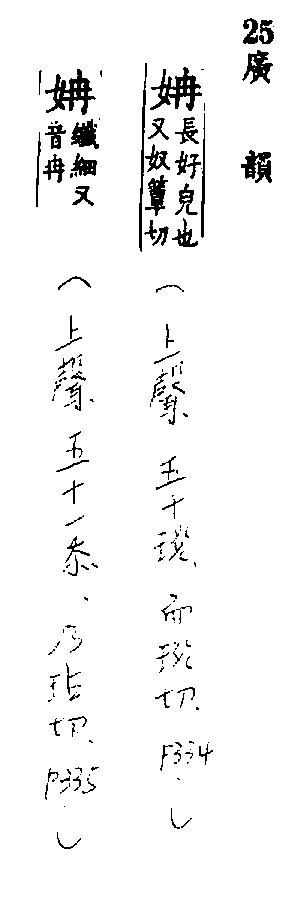 25 廣韻
姌 長好皃也又奴簟切(上聲、五十琰、而琰切、P334.)
姌 纖細又音冉(上聲、五十一忝、乃玷切、P335.)